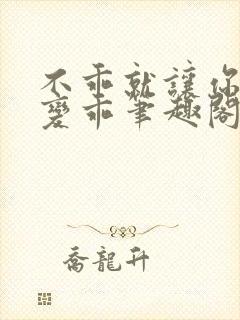 不乖就讓你
變乖筆趣閣
喬龍升